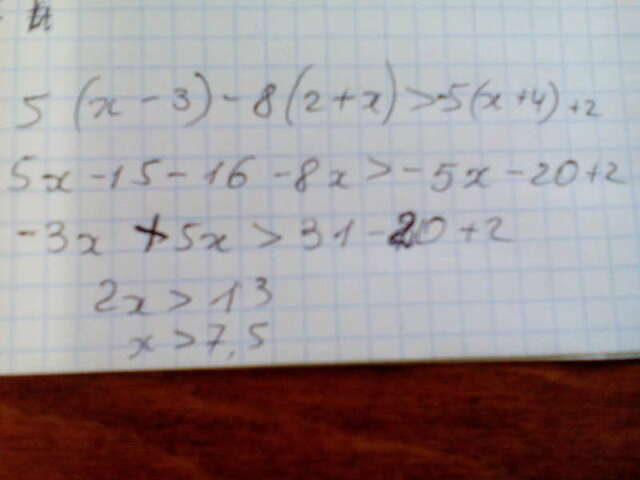 5 (x - 3) - 8 (2 + x) > -5(x + 4) + 2
5x - 15 - 16 - 8x > - 5x - 20 + 2
- 3x + 5x > 31 - 20 + 2
2x > 13
x > 7,5